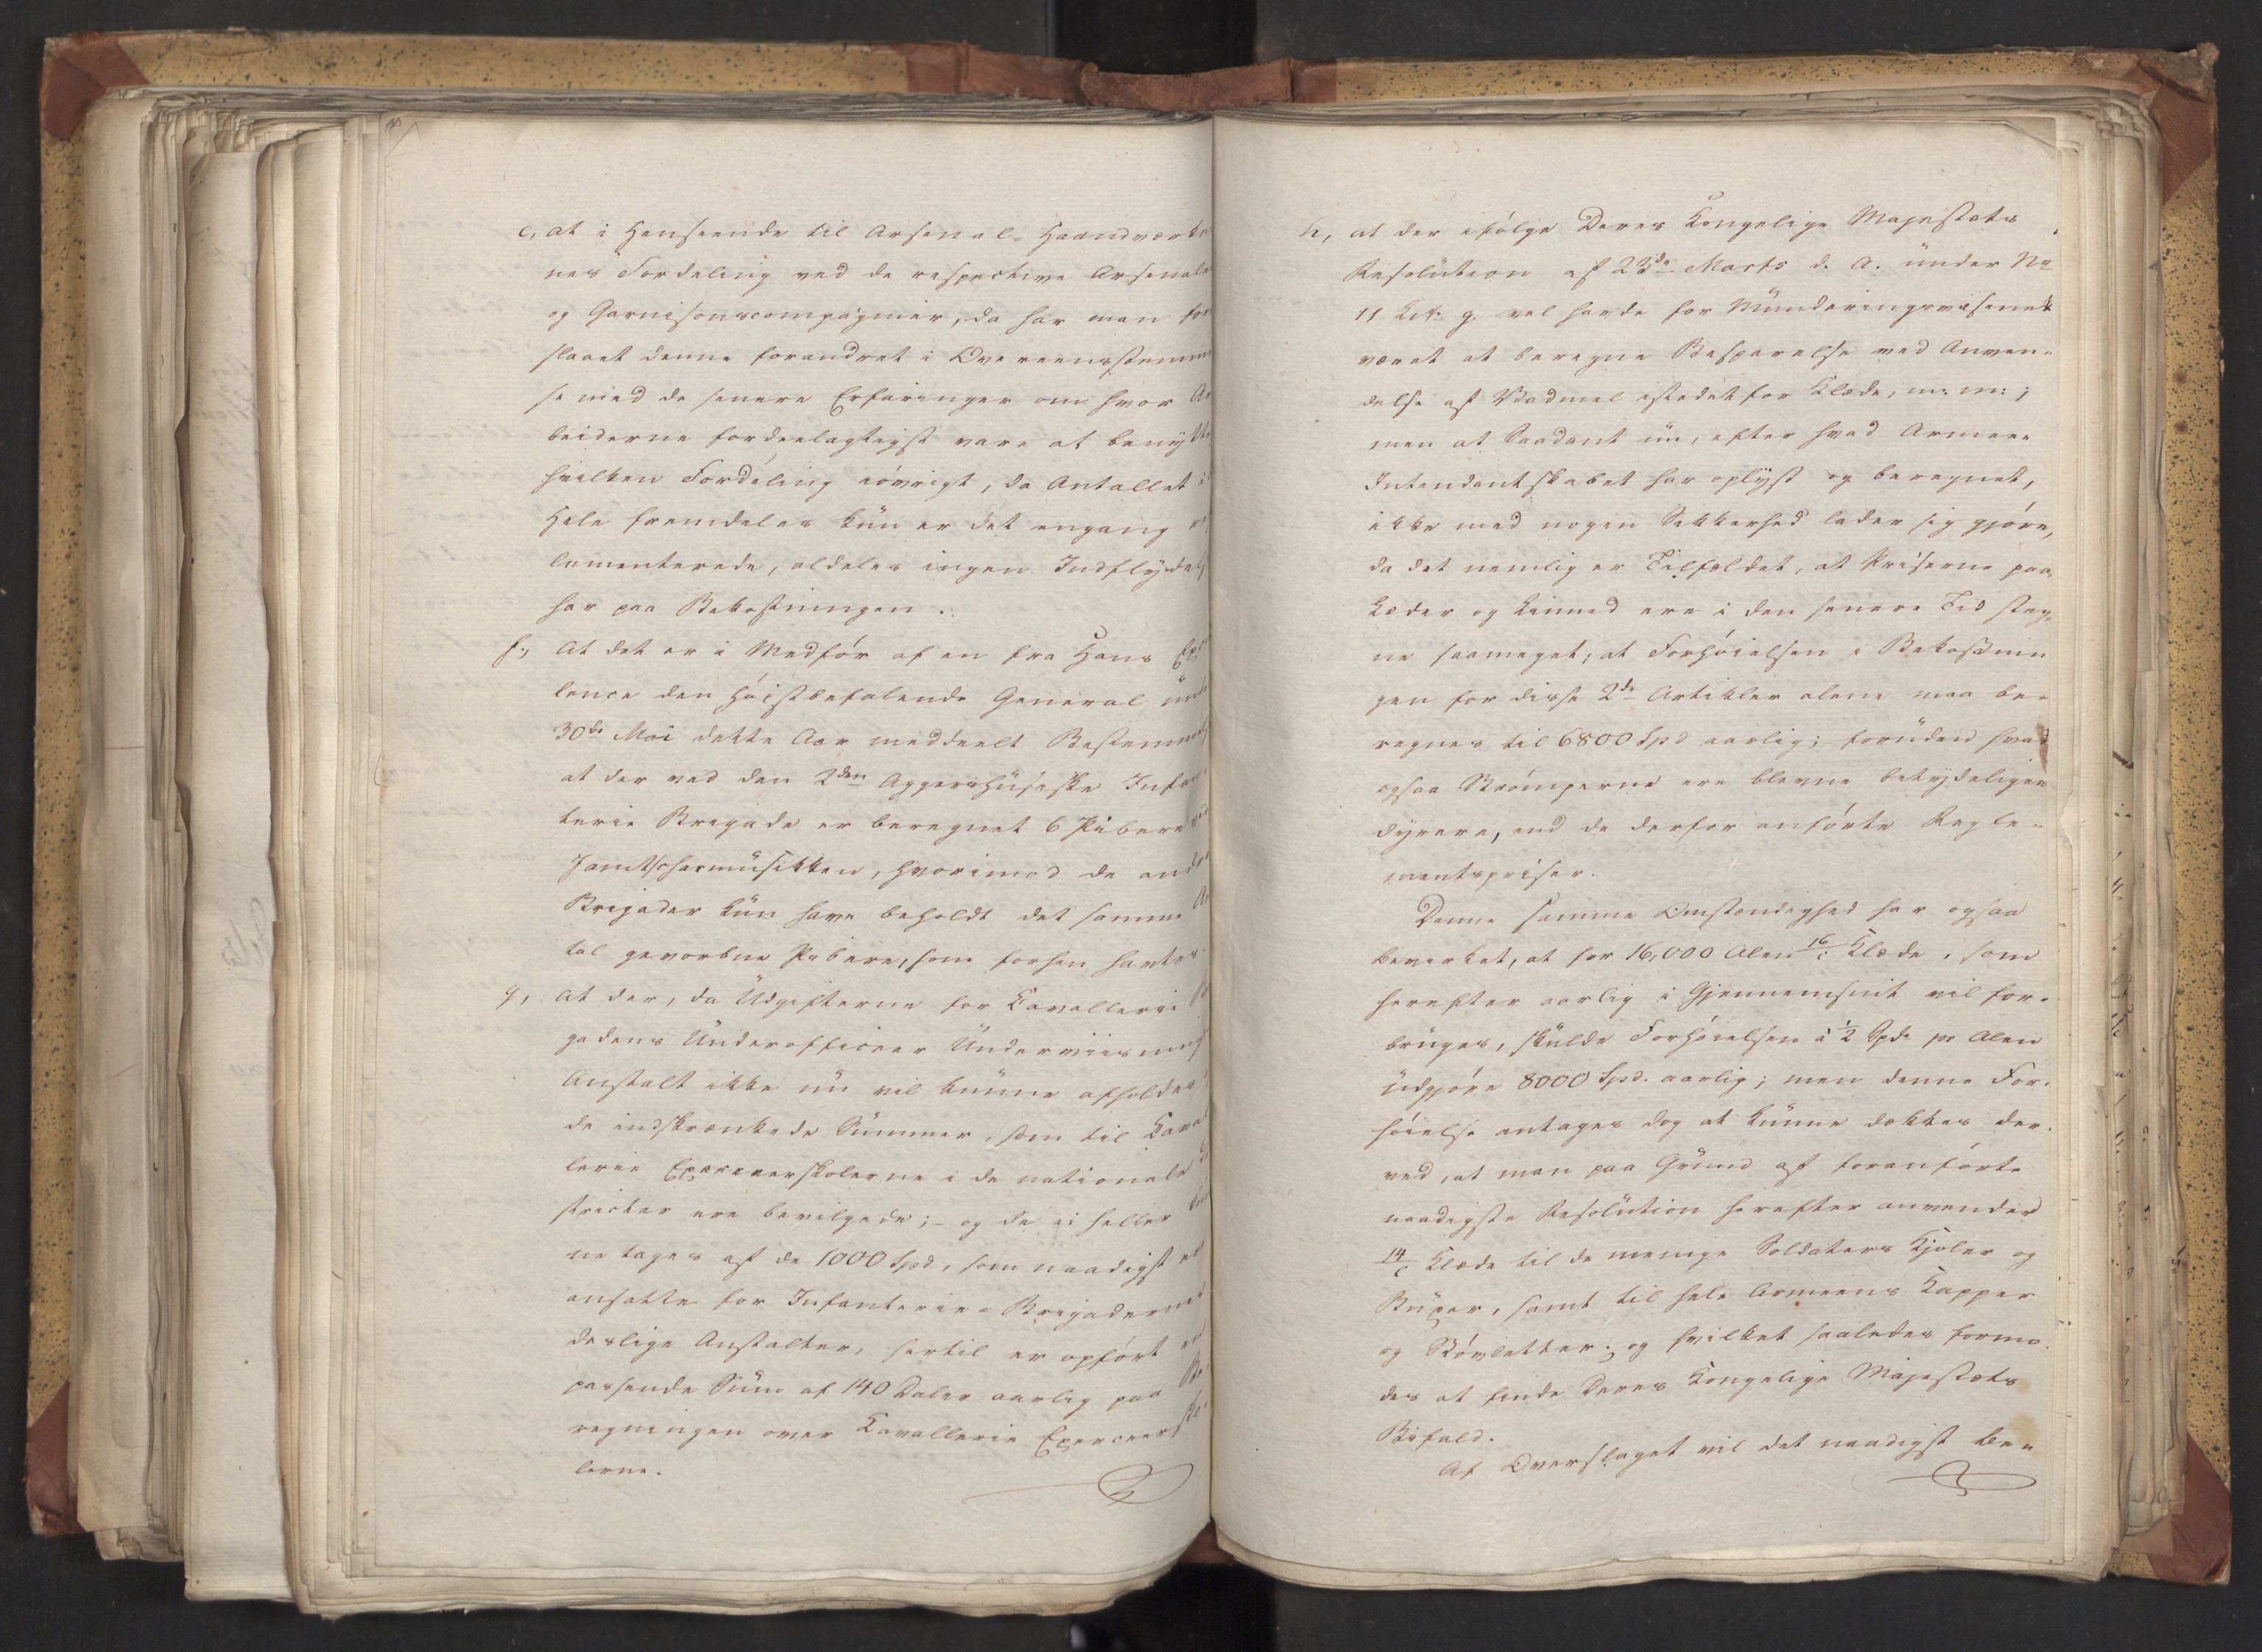 e, at i Henseende til Arsenal-Haandværke
nes Fordeling ved de respective Arsenale
og Garnisonscompagnier, da har man for
slaaet denne forandret i Overeensstemme
se med de senere Erfaringer om hvor Ar
beiderne fordeelagtigst vare at benytte
hvilken Fordeling iøvrigt, da Antallet i
Hele fremdeles kun er det engang re
lementerede, aldeles ingen Indflydels
har paa Bekostningen.
f, At det er i Medfør af en fra Hans Exe
lence den høistbefalende General unde
30de Mai dette Aar meddeelt Bestemmels
at der ved den 2den Aggershusiske Infan
terie Brigade er beregnet 6 Pibere ved
Janitscharmusikken, hvorimod de andre
Brigader kun have beholdt det samme An
tal gevorbne Pibere, som forhen havdes.
g, at der, da Udgifterne for Cavallerie Bri
gadens Underofficeer Underviisnings
Anstalt ikke nu vil kunne afholdes
de indskrænkede Summer, som til Caval
lerie Exerceerskolerne i de nationale Di
stricter ere bevilgede; og da ei heller kun
ne tages af de 1000 Spd, som naadigst er
ansatte for Infanterie-Brigadernes
deslige Anstalter, hertil er opført en
passende Sum af 140 Daler aarlig paa Be
regningen over Cavallerie Exerceersko
lerne.
h, at der ifølge Deres Kongelige Majestæts
Resolution af 23de Marts d. A. under No
11 Litr g. vel havde for Munderingsvæsenet
været at beregne Besparelse ved Anven-
delse af Vadmel istedet for Klæde, m: m:;
men at Saadant nu, efter hvad Armee-
Intendantskabet har oplyst og beregnet,
ikke med nogen Sikkerhed lader sig gjøre,
da det nemlig er Tilfældet, at Priserne paa
Læder og Linned ere i den senere Tid steg-
ne saameget, at Forhøielsen i Bekostnin
gen for disse 2de Artikler alene maa be-
regnes til 6800 Spd aarlig; foruden hvad
ogsaa Strømperne ere blevne betydeligen
dyrere, end de derfor anførte Regle-
mentspriser.
Denne samme Omstændighed har ogsaa
bevirket, at for 16,000 Alen 16/c Klæde, som
herefter aarlig i Gjennemsnit vil for-
bruges, skulde Forhøielsen à 1/2 Spd. pr Alen
udgjøre 8000 Spd. aarlig; men denne For-
høielse antages dog at kunne dækkes der-
ved, at man paa Grund af foranførte
naadigste Resolution herefter anvender
14/c Klæde til de menige Soldaters Kjoler og
Buxer, samt til hele Armeens Kapper
og Støvletter; og hvilket saaledes formo-
des at finde Deres Kongelige Majestæts
Bifald.
Af Overslaget vil det naadigst be-